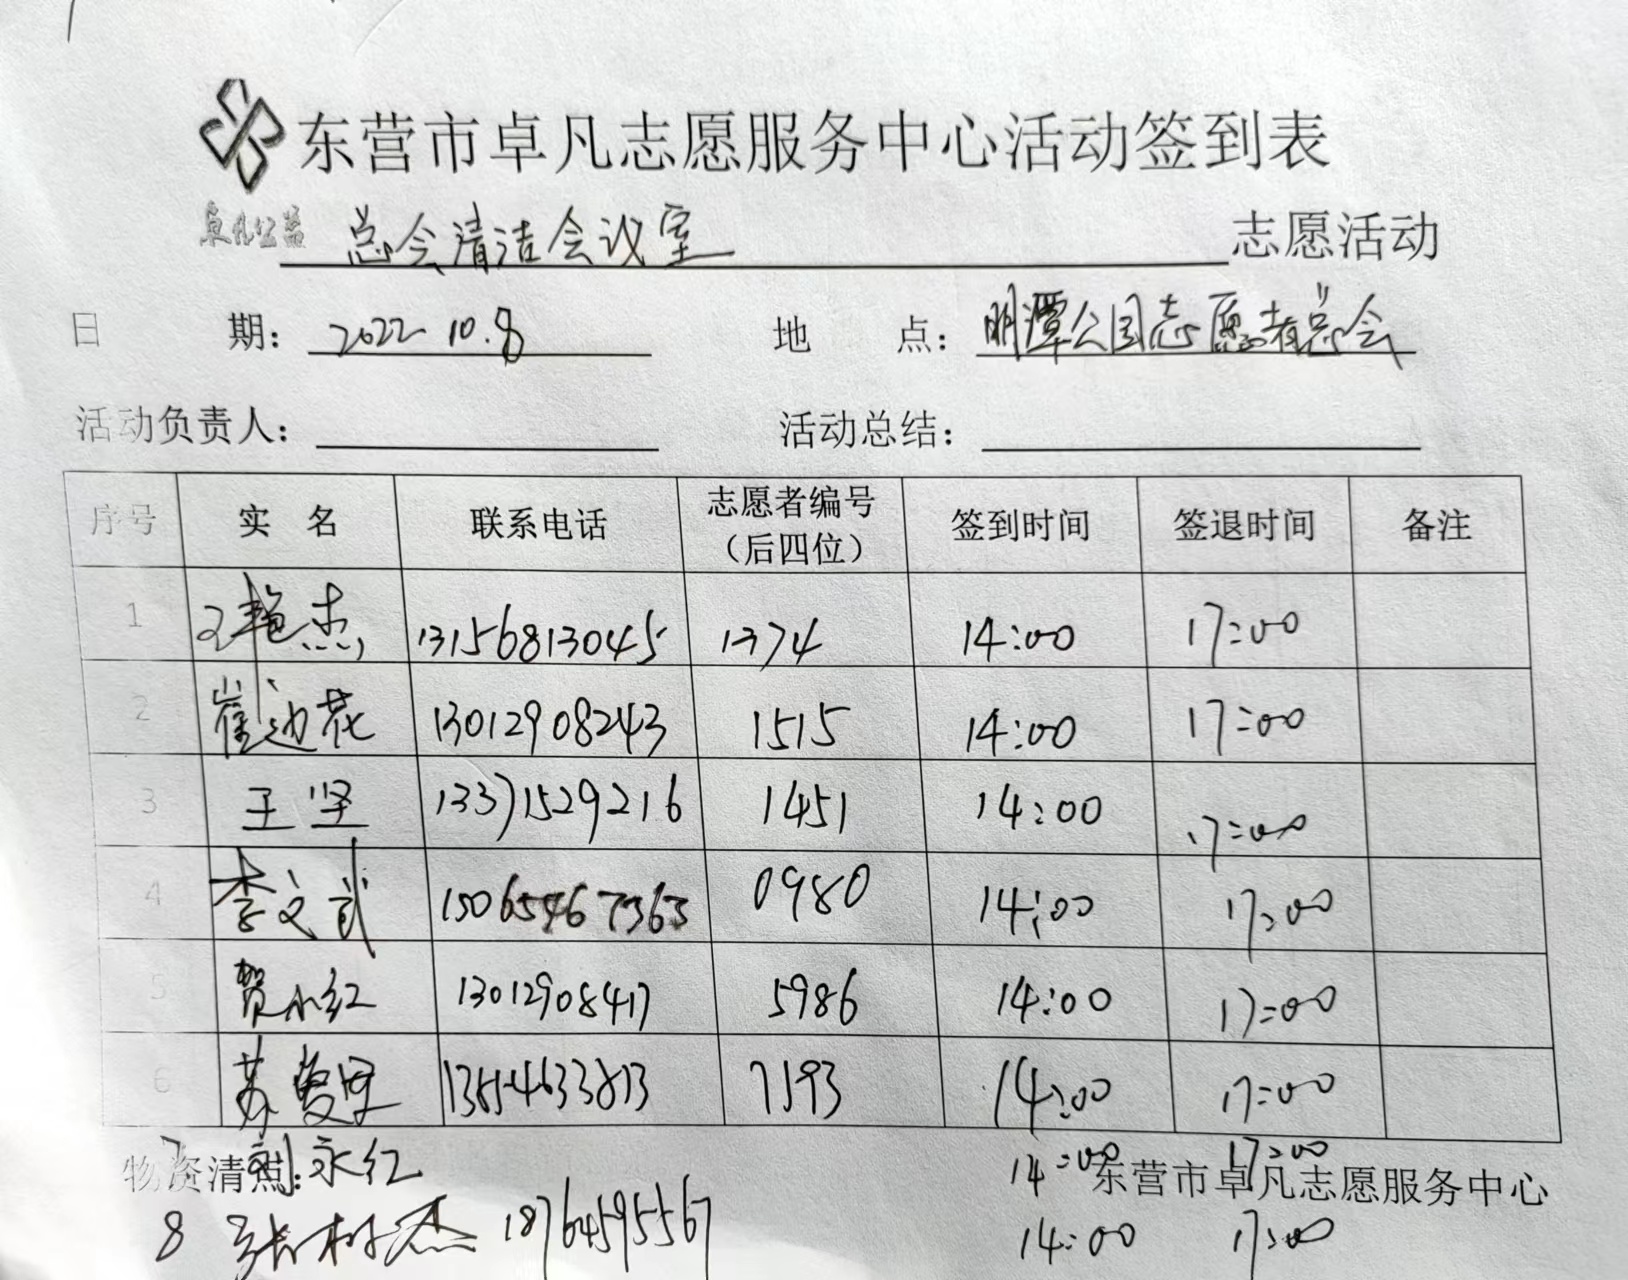 东营市卓凡志愿服务中心活动签到表
卓凡公益
总会清洁会议室 志愿活动
日 期： 2022 10.8 地 点： 明潭公园志愿者总会
活动负责人： 活动总结：
序号 实 名 联系电话 志愿者编号（后四位） 签到时间 签退时间 备注
1 王艳杰 13156813045 1374 14:00 17:00
2 崔边花 13012908243 1515 14:00 17:00
3 王坚 13371529216 1451 14:00 17:00
4 李文武 15065467363 0980 14:00 17:00
5 贺小红 13012908417 5986 14:00 17:00
6 苏 7193 14:00 17:00
7 刘永红 14:00 17:00
物资清点： 东营市卓凡志愿服务中心
8 张树杰 18764595567 14:00 17:00